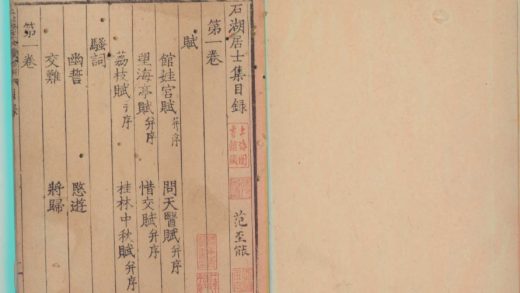 石湖居士集目錄 范至能
第一卷
賦
館娃宮賦并序 問天醫賦并序
望海亭賦并序 惜交賦并序
荔枝賦并序 桂林中秋賦并序
騷詞
幽誓 愍遊
交難 將歸
第一卷
上海圖書館藏